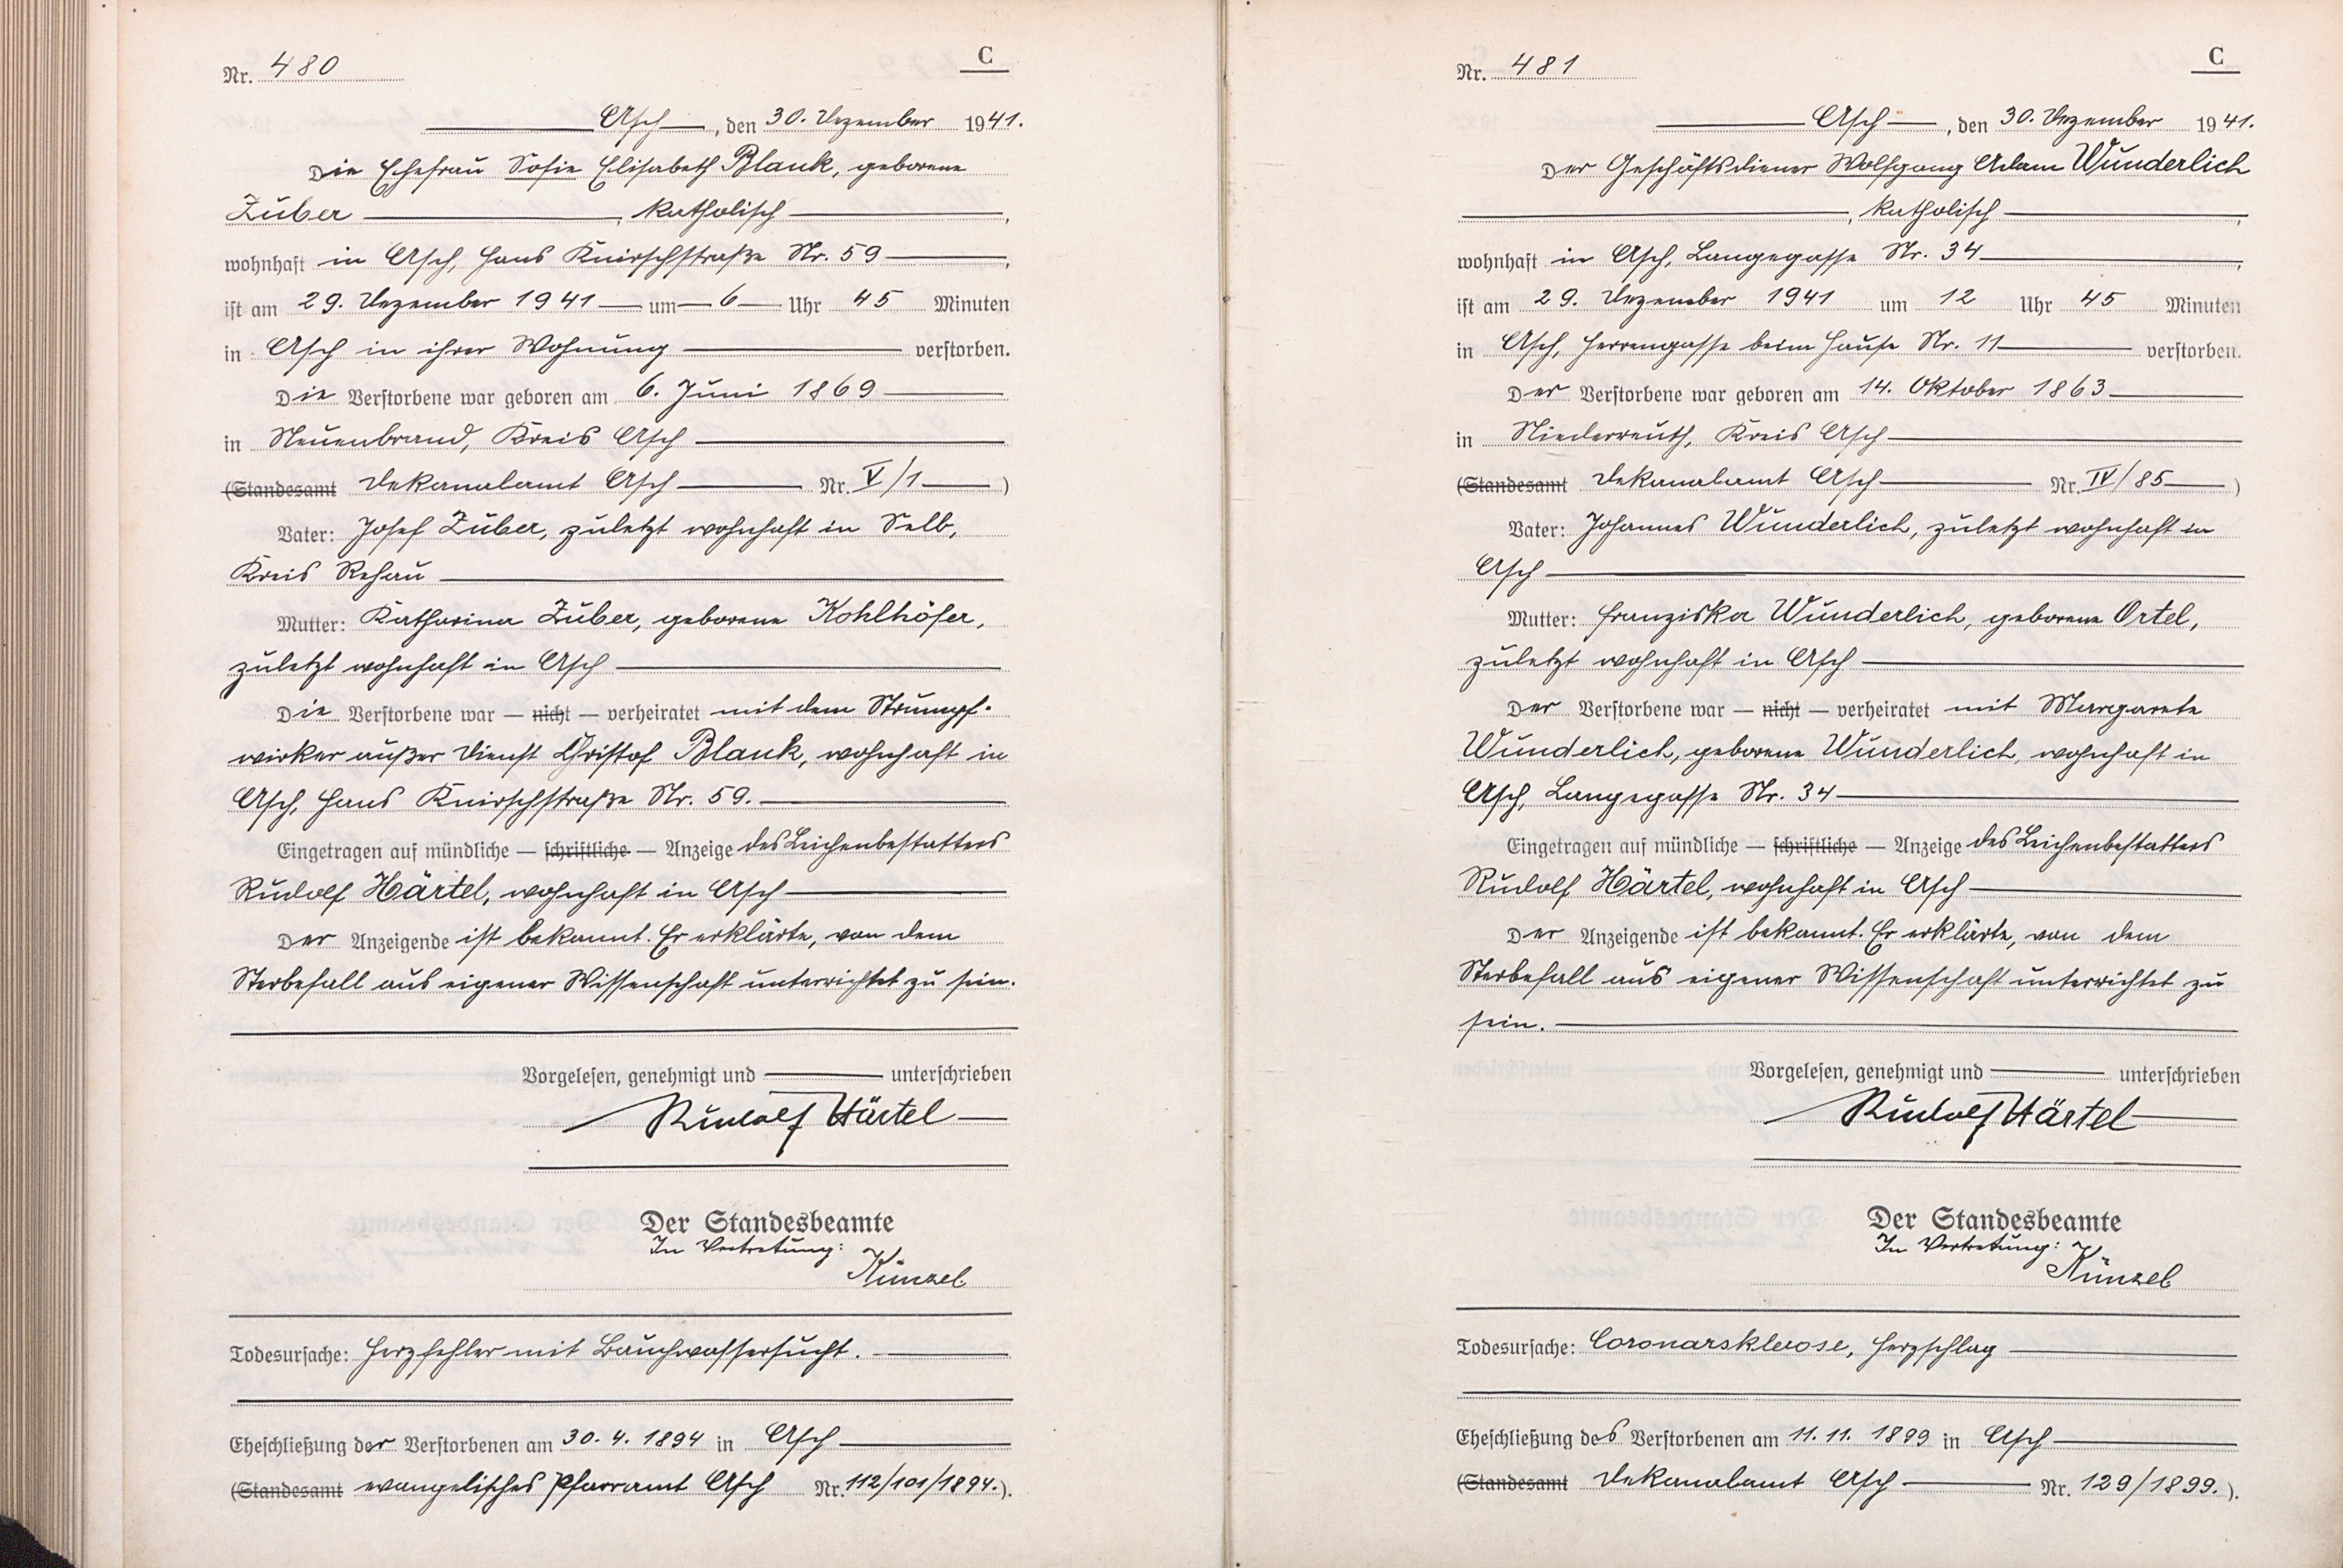 Nr. 480
C
Asch, den 30. Dezember 1941.
Die Ehefrau Sofie Elisabeth Blank, geborene
Zuber, katholisch,
wohnhaft in Asch, Hans Knirschstraße Nr. 59,
ist am 29. Dezember 1941 um 6 Uhr 45 Minuten
in Asch in ihrer Wohnung verstorben.
Die Verstorbene war geboren am 6. Juni 1869
in Neuenbrand, Kreis Asch
(Standesamt Dekanalamt Asch Nr. V/1)
Vater: Josef Zuber, zuletzt wohnhaft in Selb,
Kreis Rehau
Mutter: Katharina Zuber, geborene Kohlhöfer,
zuletzt wohnhaft in Asch
Die Verstorbene war — nicht — verheiratet mit dem Strumpf-
wirker außer Dienst Christof Blank, wohnhaft in
Asch, Hans Knirschstraße Nr. 59.
Eingetragen auf mündliche — schriftliche — Anzeige des Leichenbestatters
Rudolf Härtel, wohnhaft in Asch
Der Anzeigende ist bekannt. Er erklärte, von dem
Sterbefall aus eigener Wissenschaft unterrichtet zu sein.
Vorgelesen, genehmigt und unterschrieben
Rudolf Härtel
Der Standesbeamte
In Vertretung:
Künzel
Todesursache: Herzfehler mit Bauchwassersucht.
Eheschließung der Verstorbenen am 30. 4. 1894 in Asch
(Standesamt evangelisches Pfarramt Asch Nr. 112/101/1894.).
Nr. 481
C
Asch, den 30. Dezember 1941.
Der Geschäftsdiener Wolfgang Adam Wunderlich
, katholisch,
wohnhaft in Asch, Langegasse Nr. 34,
ist am 29. Dezember 1941 um 12 Uhr 45 Minuten
in Asch, Herrengasse beim Hause Nr. 11 verstorben.
Der Verstorbene war geboren am 14. Oktober 1863
in Niederreuth, Kreis Asch
(Standesamt Dekanalamt Asch Nr. IV/85)
Vater: Johannes Wunderlich, zuletzt wohnhaft in
Asch
Mutter: Franziska Wunderlich, geborene Ortel,
zuletzt wohnhaft in Asch
Der Verstorbene war — nicht — verheiratet mit Margarete
Wunderlich, geborene Wunderlich, wohnhaft in
Asch, Langegasse Nr. 34
Eingetragen auf mündliche — schriftliche — Anzeige des Leichenbestatters
Rudolf Härtel, wohnhaft in Asch
Der Anzeigende ist bekannt. Er erklärte, von dem
Sterbefall aus eigener Wissenschaft unterrichtet zu
sein.
Vorgelesen, genehmigt und unterschrieben
Rudolf Härtel
Der Standesbeamte
In Vertretung:
Künzel
Todesursache: Coronarsklerose, Herzschlag
Eheschließung des Verstorbenen am 11. 11. 1899 in Asch
(Standesamt Dekanalamt Asch Nr. 129/1899.).